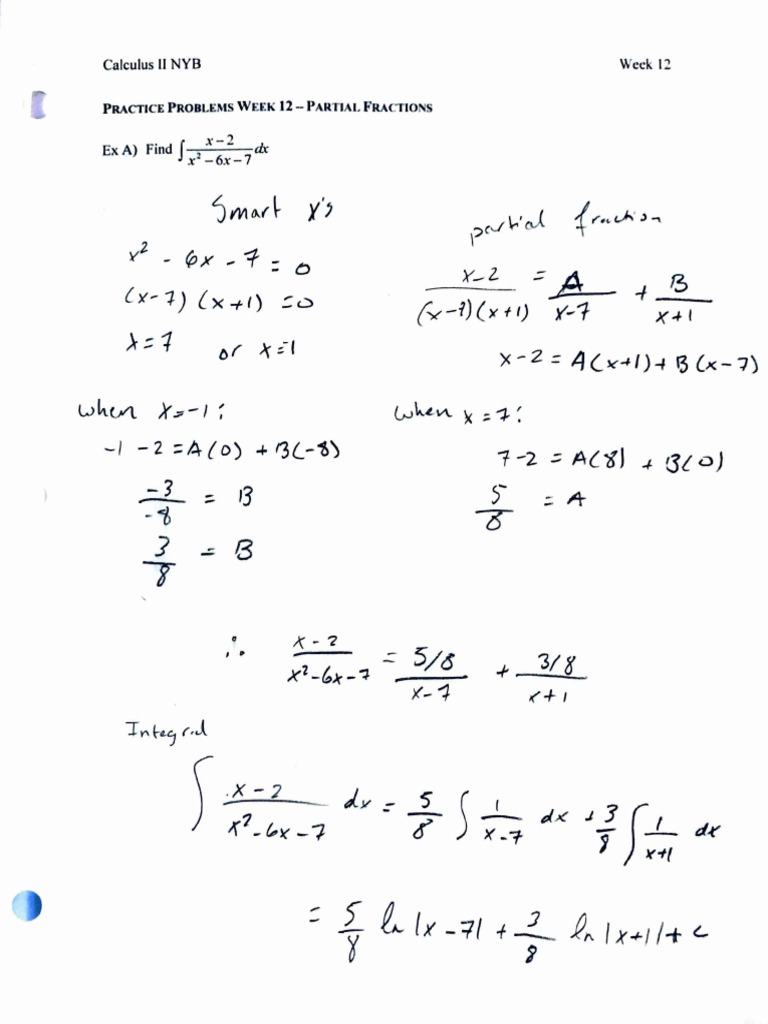 Calculus II NYB Week 12
PRACTICE PROBLEMS WEEK 12 – PARTIAL FRACTIONS
Ex A) Find ∫ (x−2)/(x²−6x−7) dx
Smart x's
x² - 6x - 7 = 0
(x-7) (x+1) = 0
x=7 or x=-1
partial fraction
x-2/(x-7)(x+1) = A/x-7 + B/x+1
x-2 = A(x+1) + B(x-7)
when x=-1:
-1 -2 = A(0) + B(-8)
-3/-8 = B
3/8 = B
when x=7:
7-2 = A(8) + B(0)
5/8 = A
∴ x-2/x²-6x-7 = 5/8/x-7 + 3/8/x+1
Integral
∫ x-2/x²-6x-7 dx = 5/8 ∫ 1/x-7 dx + 3/8 ∫ 1/x+1 dx
= 5/8 ln|x-7| + 3/8 ln|x+1| + c